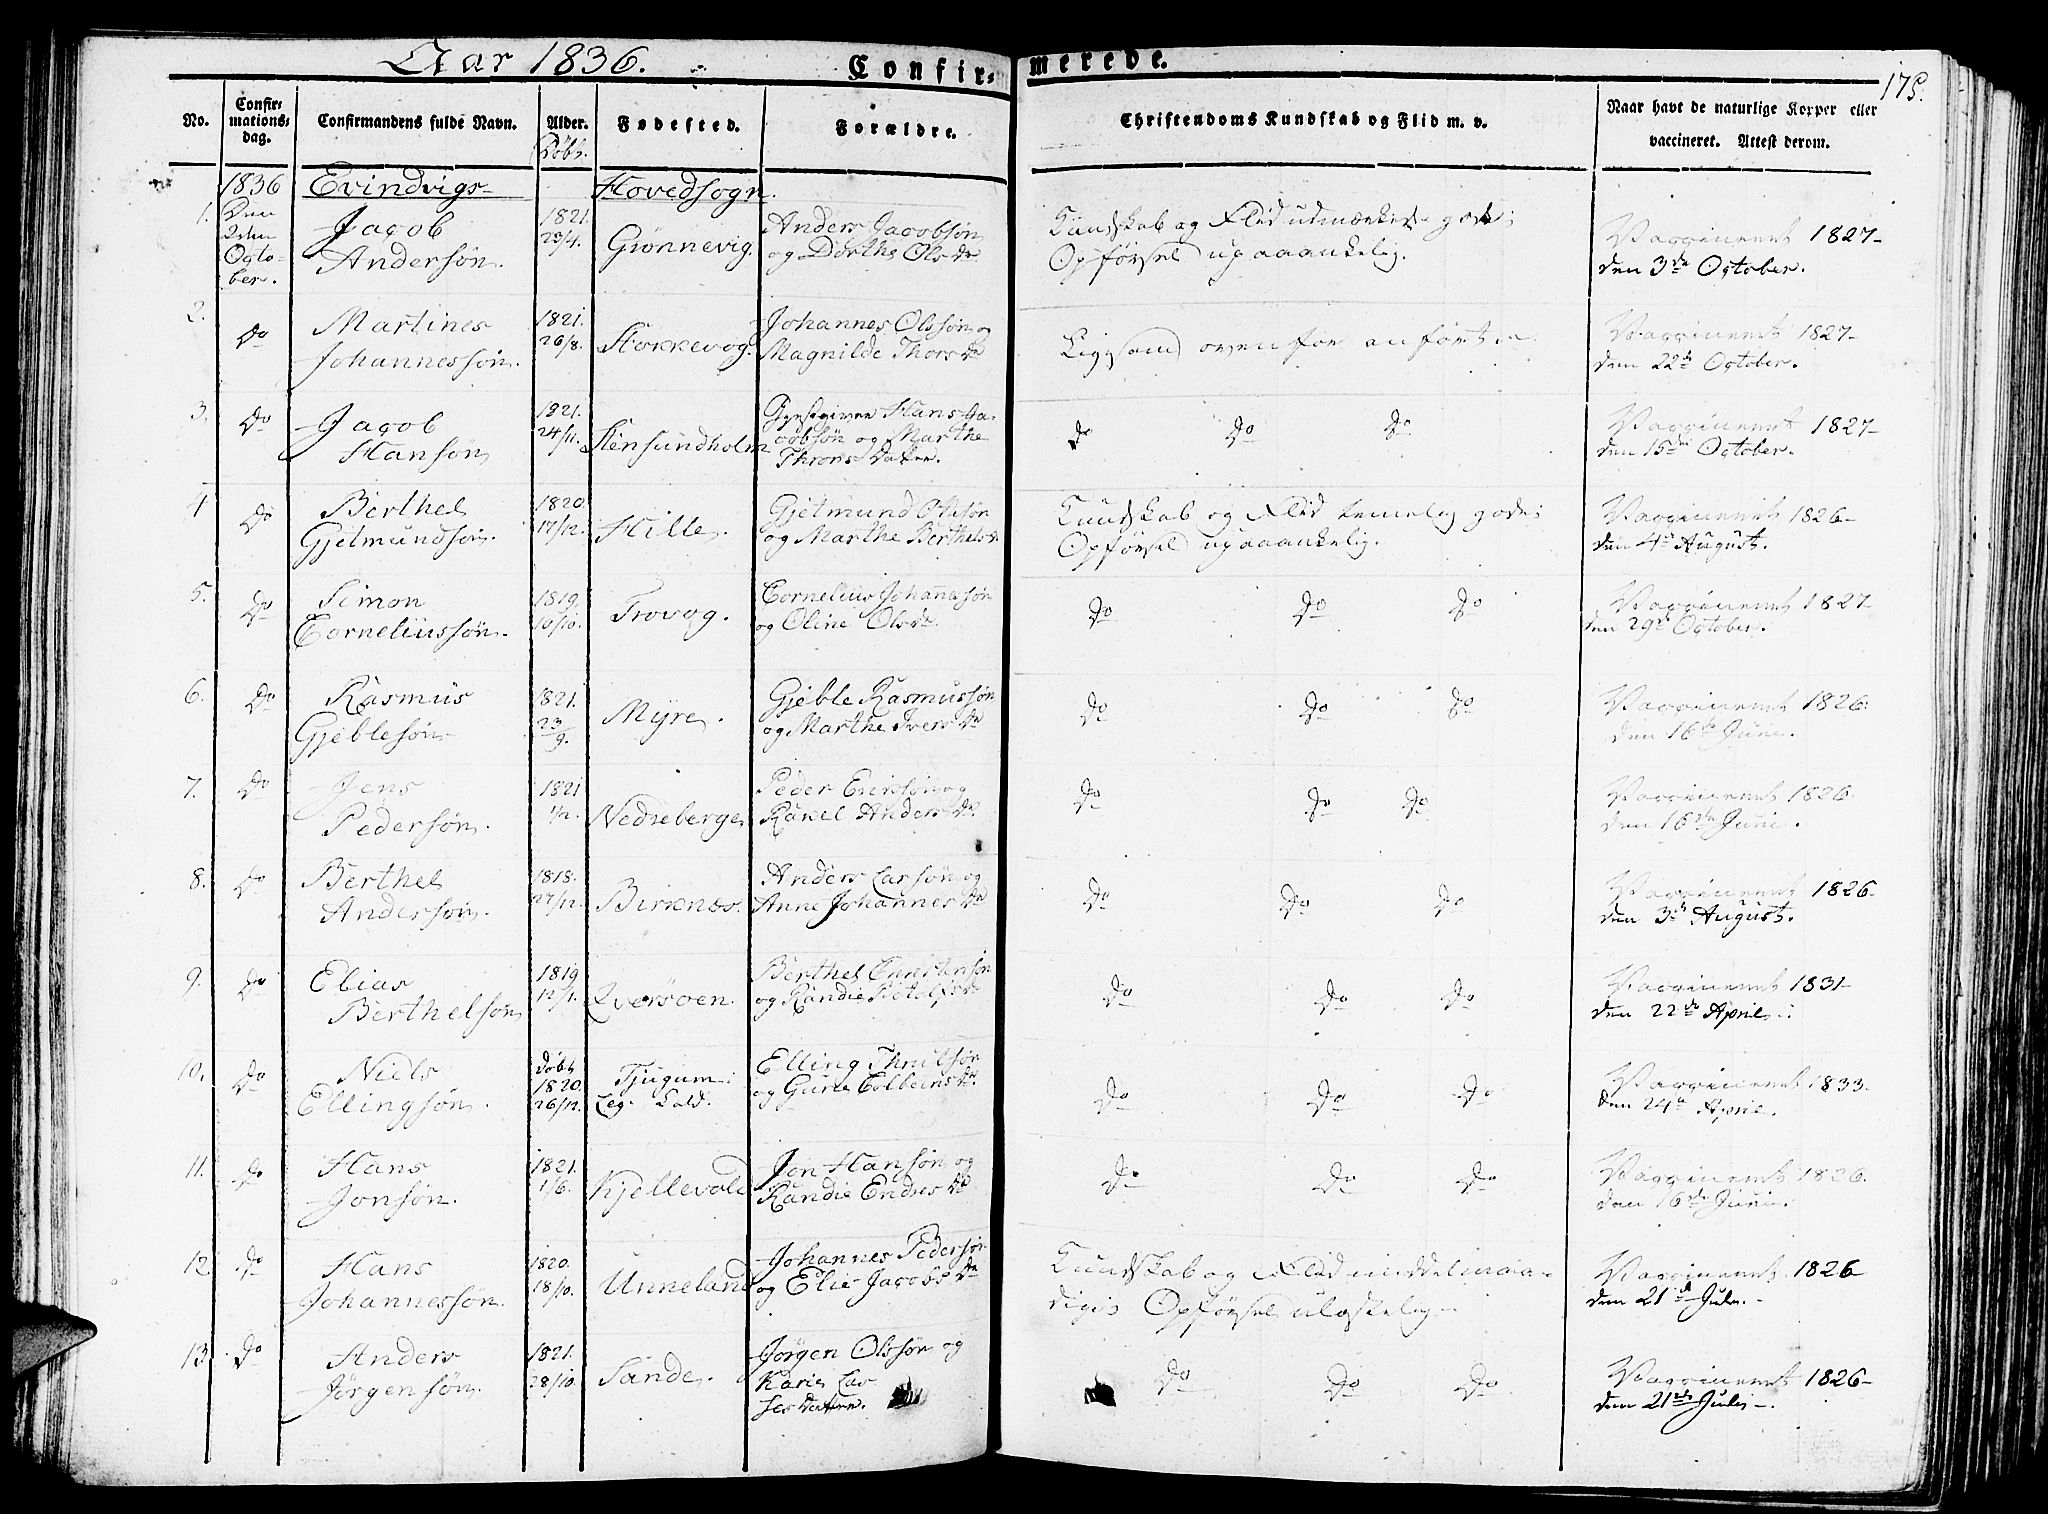 Aar 1836. Confir-
merede.
175.
No.
Confir-
mations-
dag.
Confirmandens fulde Navn.
Alder.
Döbt.
Fødested.
Forældre.
Christendoms Kundskab og Flid m. v.
Naar havt de naturlige Kopper eller
vaccineret. Attest derom.
1836 Evindvigs- Hovedsogn.
1. Den
2den
Octo-
ber.
Jacob
Andersøn.
1821.
Grönnevig.
Anders Jacobsøn
og Dorthe Olsdr
Kundskab og Flid udmærkede gode;
Opførsel upaaankelig.
Vaccineret 1827-
den 3de October.
2. Do
Martines
Johannessøn.
1821.
26/8.
Johannes Olssøn og
Magnilde Thorsdr
Ligesom ovenfor anført
Vaccineret 1827-
den 22de October.
3. Do
Jacob
Hansøn
1821.
24/11.
Stensundholm
Gjestgiver Hans Ja-
cobsøn og Marthe
Throns Datter.
do Do Do
Vaccineret 1827-
den 15de October.
4 Do
Berthel
Gjelmundsøn.
1820.
17/12.
Hille.
Gjelmund
og Marthe Berthelsdr
Kundskab og Flid temmelig gode;
Opførsel upaaankelig.
Vaccineret 1826-
den 4de August.
5. Do
Simon
Corneliussøn.
1819.
10/10.
Trovog.
Cornelius Johannessøn
og Oline Olsdr.
Do Do Do
Vaccineret 1827-
den 29de October.
6. Do
Rasmus
Gjeblesøn
1821.
23/9.
Myre.
Gjeble Rasmussøn
og Marthe Iversdr
Do Do Do
Vaccineret 1826.
den 16de Juni.
7. Do
Jens
Pedersøn.
1821
Nedreberge
Peder Ericksøn og
Rakel Andersdr.
Do Do Do
Vaccineret 1826.
den 16de Juni.
8. Do
Berthel
Andersøn.
1818.
27/12.
Birknes.
Anders Larsøn og
Anne Johannesdr
Do Do Do
Vaccineret 1826-
den 3de August.
9. Do
Elias
Berthelsøn
1819
12/1.
Berthel
og Randie
Do Do Do
Vaccineret 1831-
den 22de April.
10. Do
Niels
Ellingsøn.
Döbt
1820.
26/12.
Tjugum
Elling
og Gurie Colbeinsdr.
Do Do Do
Vaccineret 1833.
den 24de April.
11. Do
Hans
Jonsøn.
1821.
1/6.
Kjellevold
Jon Hansøn og
Randie Endresdr
Do Do Do
Vaccineret 1826.
den 16de Juni.
12 Do
Hans
Johannessøn.
1820.
18/10.
Unneland
Johannes Pedersøn
og Elie Jacobsdr
Kundskab og Flid middelmaa-
dige; Opførsel ulastelig.
Vaccineret 1826
den 21de Juli.
13 Do
Anders
Jörgensøn.
1821.
28/10.
Sande.
Jörgen Olssøn og
Karie Lar
ses Datter.
Do Do Do
Vaccineret 1826-
den 21de Juli.